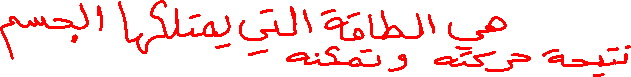 هي الطاقة التي يمتلكها الجسم
نتيجة حركته وتمكنه